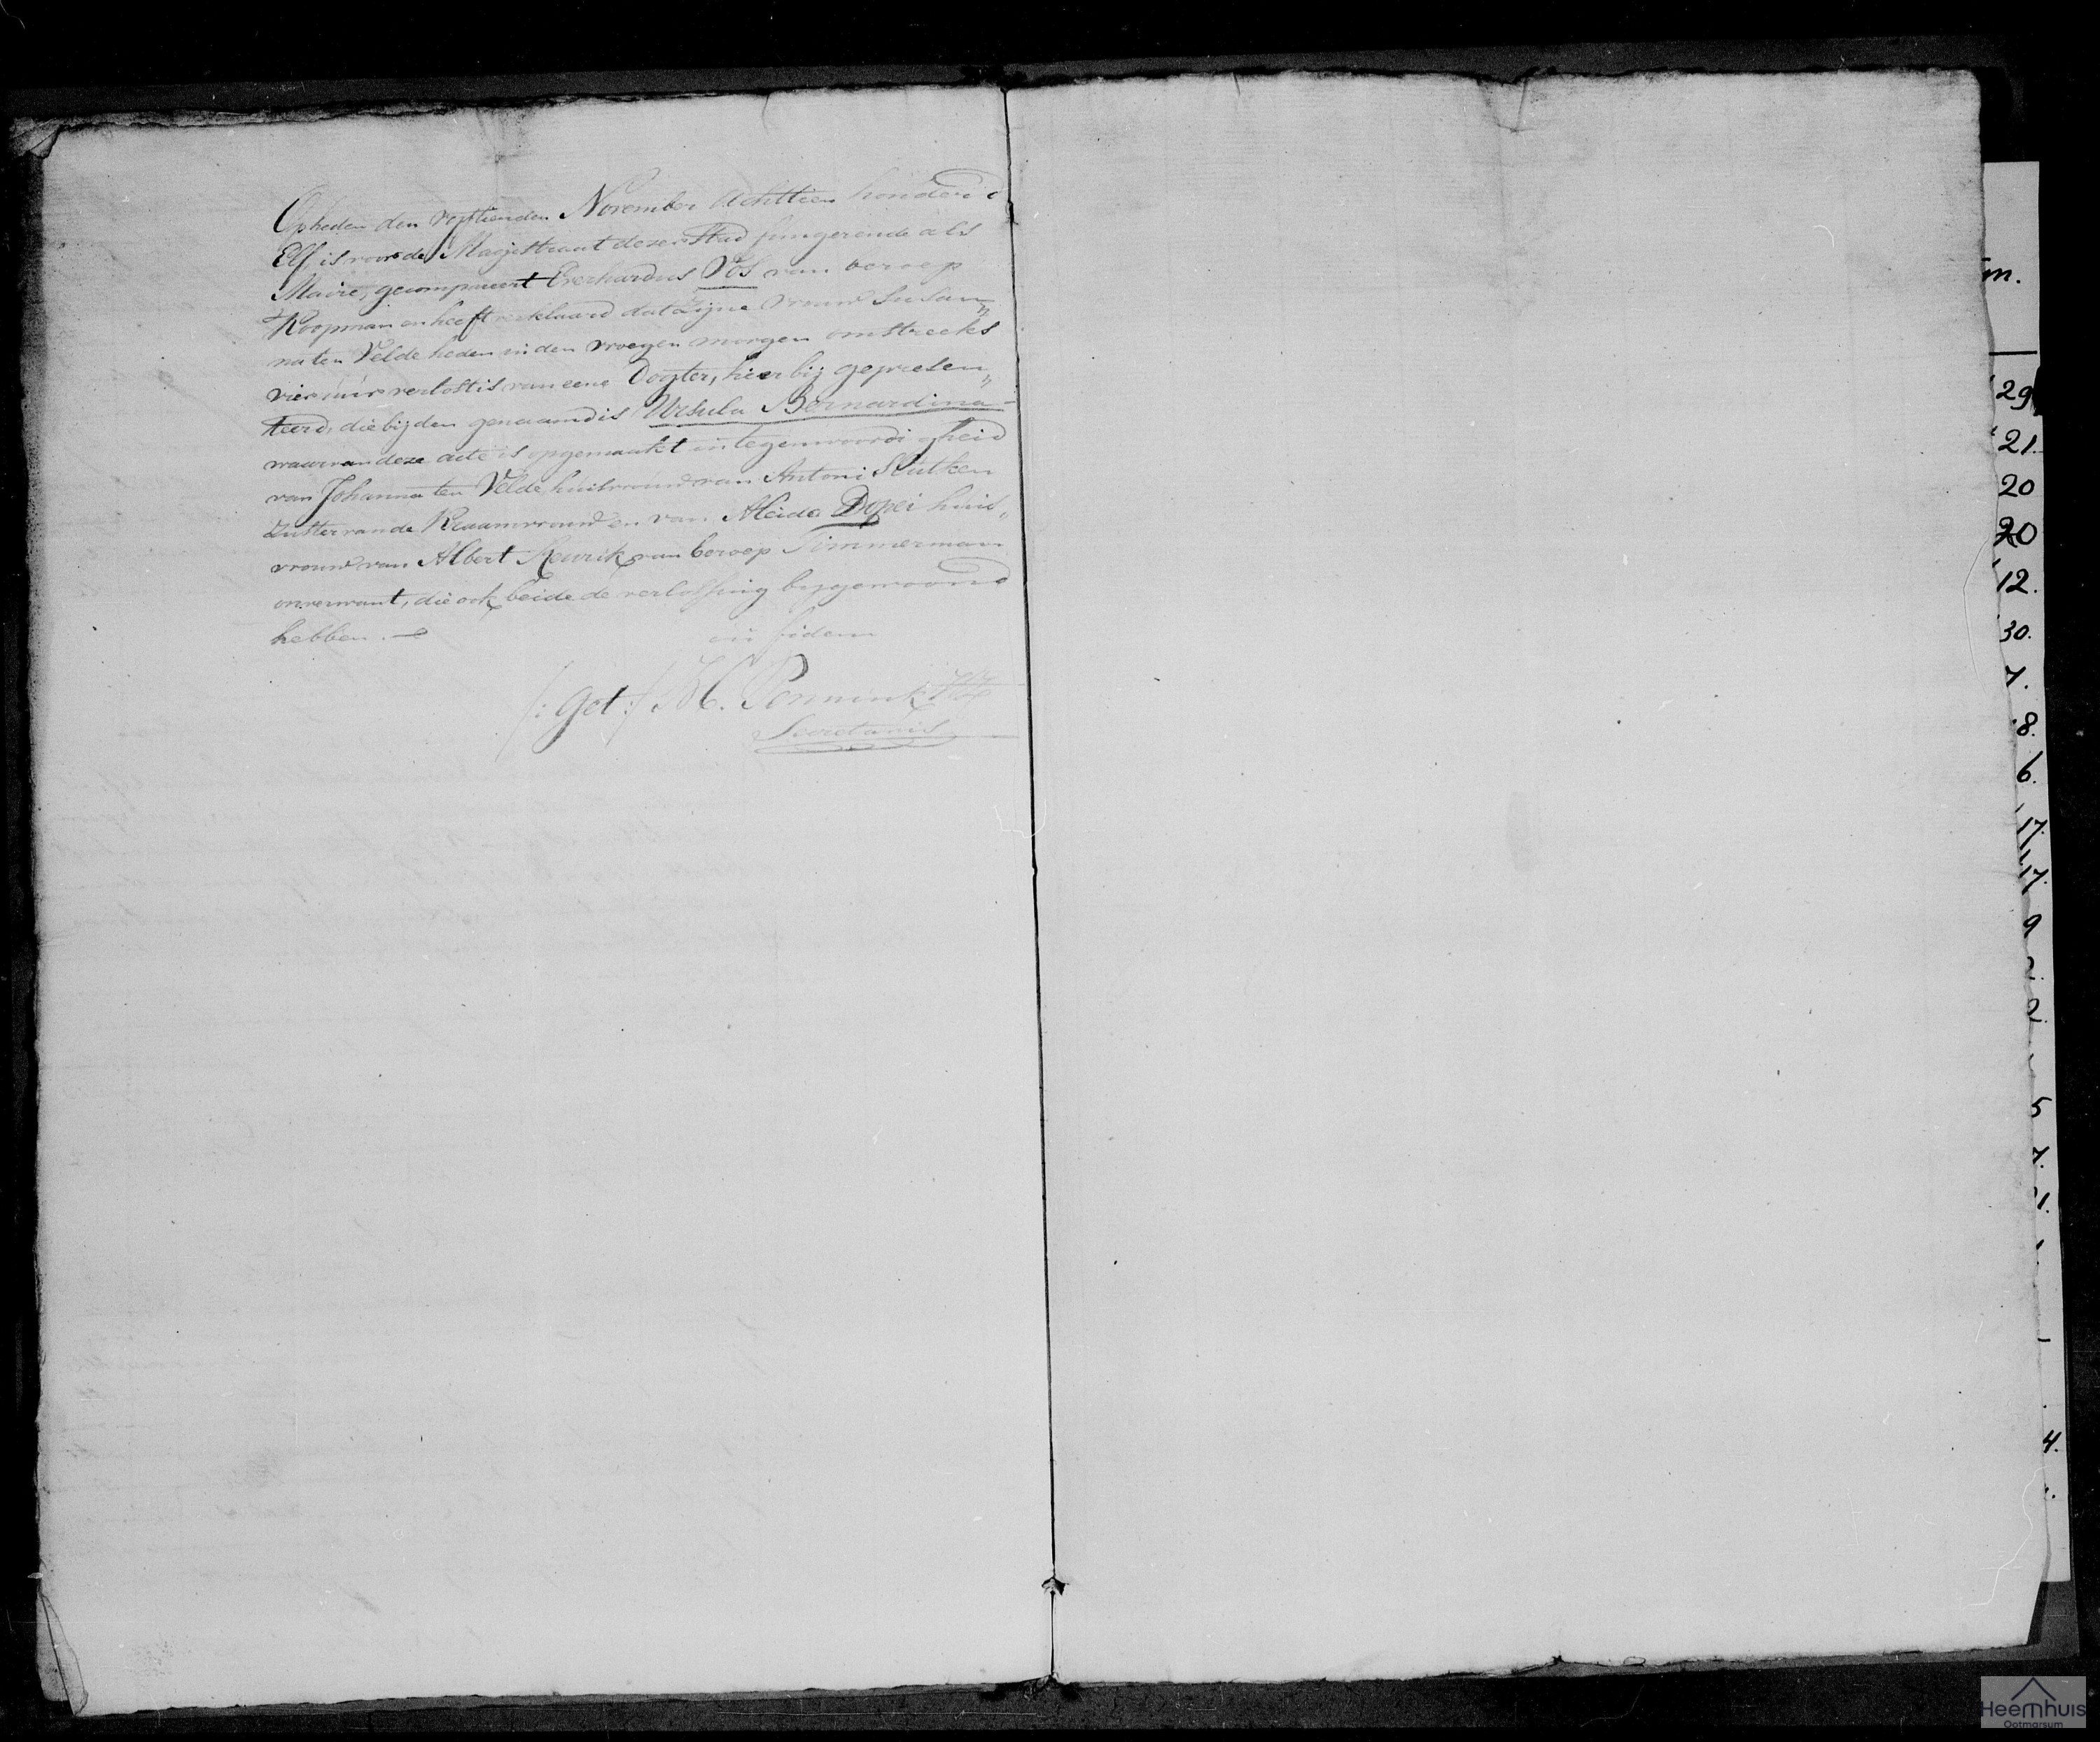 Opheden den vyftienden November Achttien honderd
Elf, is voor de Magistraat dezer Stad fungerende als
Maire, gecompareert Everhardus Vos van beroep
Koopman en heeft verklaard dat Zijne Vrouw Susan„
na ten Velde heden in den vroegen morgen omstreeks
vier uur verlost is van eene Dogter, hier bij gepresen„
teerd, die bijden genaamd is Ursula Bernardina
waarvan deze acte is opgemaakt in tegenwoordigheid
van Johanna ten Velde huisvrouw van Antoni
Zuster van de Kraamvrouw en van Aleida huis„
vrouw van Albert van beroep Timmerman
onverwant, die ook beide de verlossing bygewoond
hebben. —
in fidem
(: get :) H. Pennink
Secretaris
m.
29
21.
20
20
12.
30.
1.
8.
6.
4.
Heemhuis
Ootmarsum